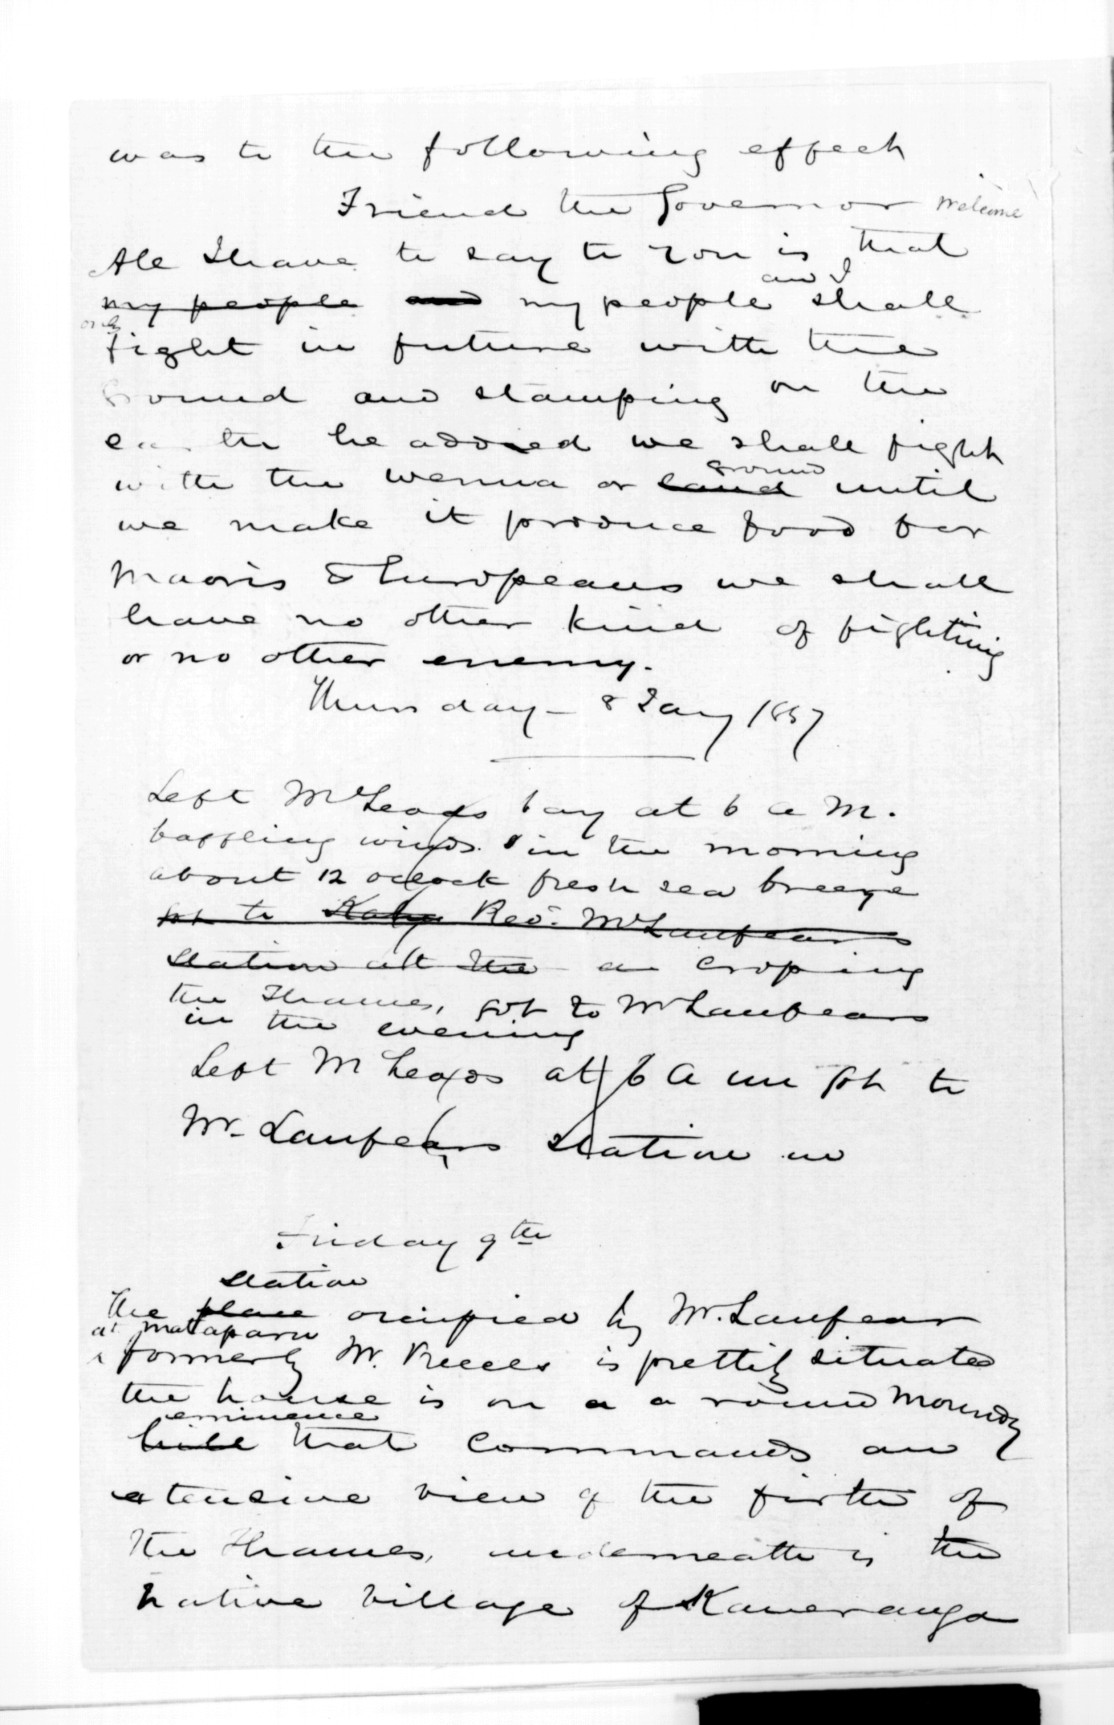 was to the following effect
Friend the Governor Welcome
All I have to say to you is that
~~my people~~ ~~and~~ my people and I shall
only
fight in future with the
Ground and stamping on the
earth he added we shall fight
with the wenua or ~~land~~ ground until
we make it produce food for
Maoris & Europeans we shall
have no other kind of fighting
or no other enemy.
Thursday - 8 Jany 1857
Left McLeods bay at 6 a M.
baffling winds in the morning
about 12 oclock fresh sea breeze
~~got to~~ ~~Rev. Mr Lanfears~~
~~station at the~~ croping
the Thames, got to Mr Lanfears
in the evening
Left McLeods at 6 A m got to
Mr. Lanfears station in
Friday 9th
station
The ~~place~~ occupied by Mr. Lanfear
at Mataparu
formerly Mr. Preeces is prettily situated
the house is on a a round Moundy
eminence
~~hill~~ that commands an
extensive view of the firth of
the Thames, underneath is the
native village of Kaueranga